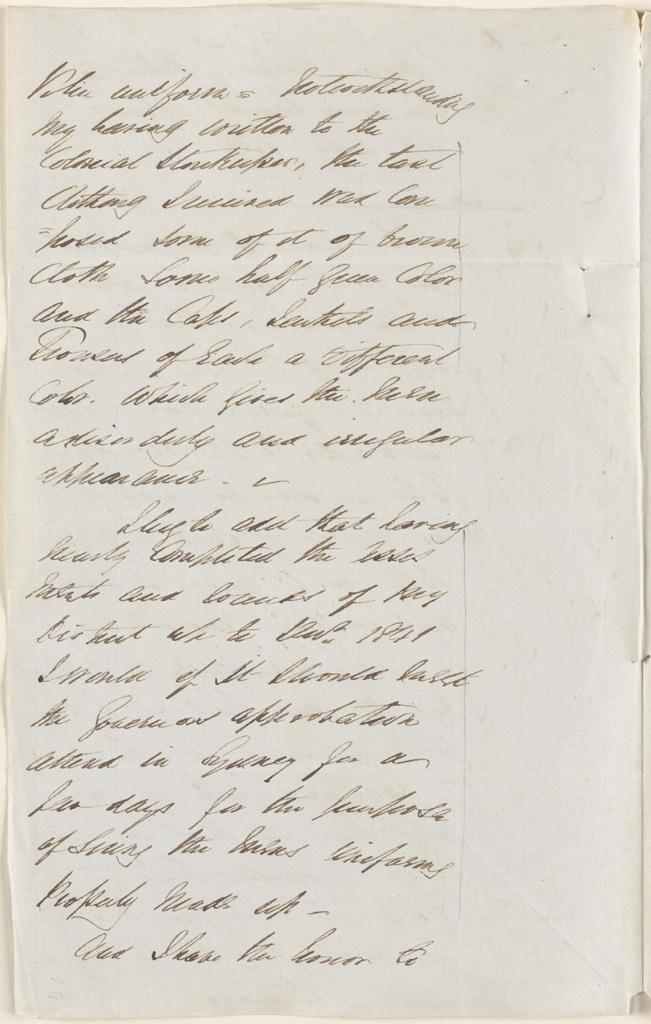 uniform = Notwithstanding
my having written to the
Colonial Storekeeper, the last
Clothing I received was Com
=posed some of it of brown
Cloth some half green Color
and the Caps, Jackets and
Trousers of Each a different
Color. Which gives the men
a disorderly and irregular
appearance.
I beg to add that having
nearly Completed the
and of my
District up to 1841
I would if it should meet
the Governors approbation
attend in Sydney for a
few days for the purpose
of seeing the mens uniforms
Properly made up —
And I have the honor to